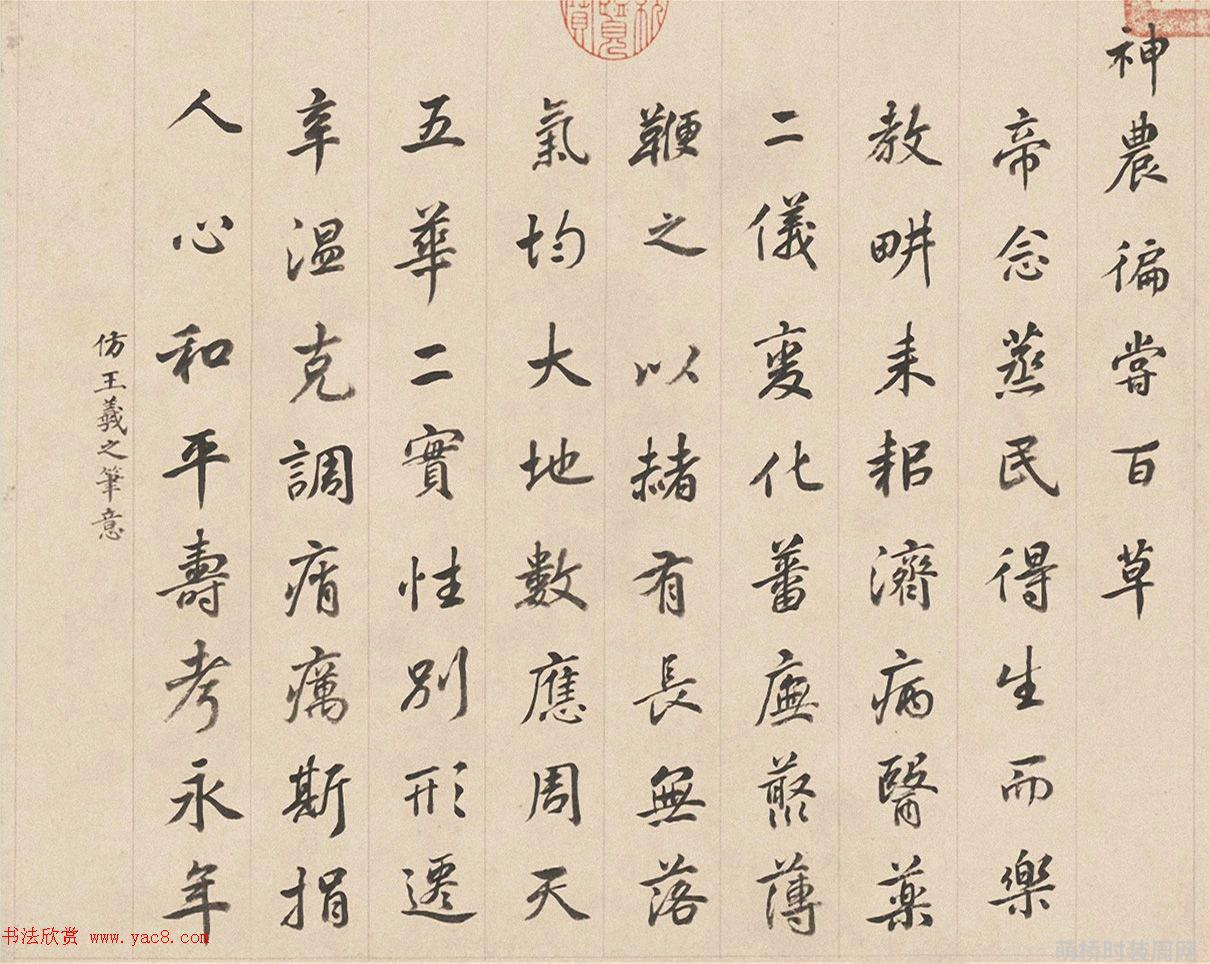 神農徧嘗百草
帝念蒸民得生而樂
教畊耒耜濟病醫藥
二儀變化蕃廡藂薄
鞭之以赭有長無落
氣均大地數應周天
五華二實性別形遷
辛溫克調痟癘斯捐
人心和平壽考永年
仿王羲之筆意
书法欣赏 www.yac8.com
萌桥时装周网